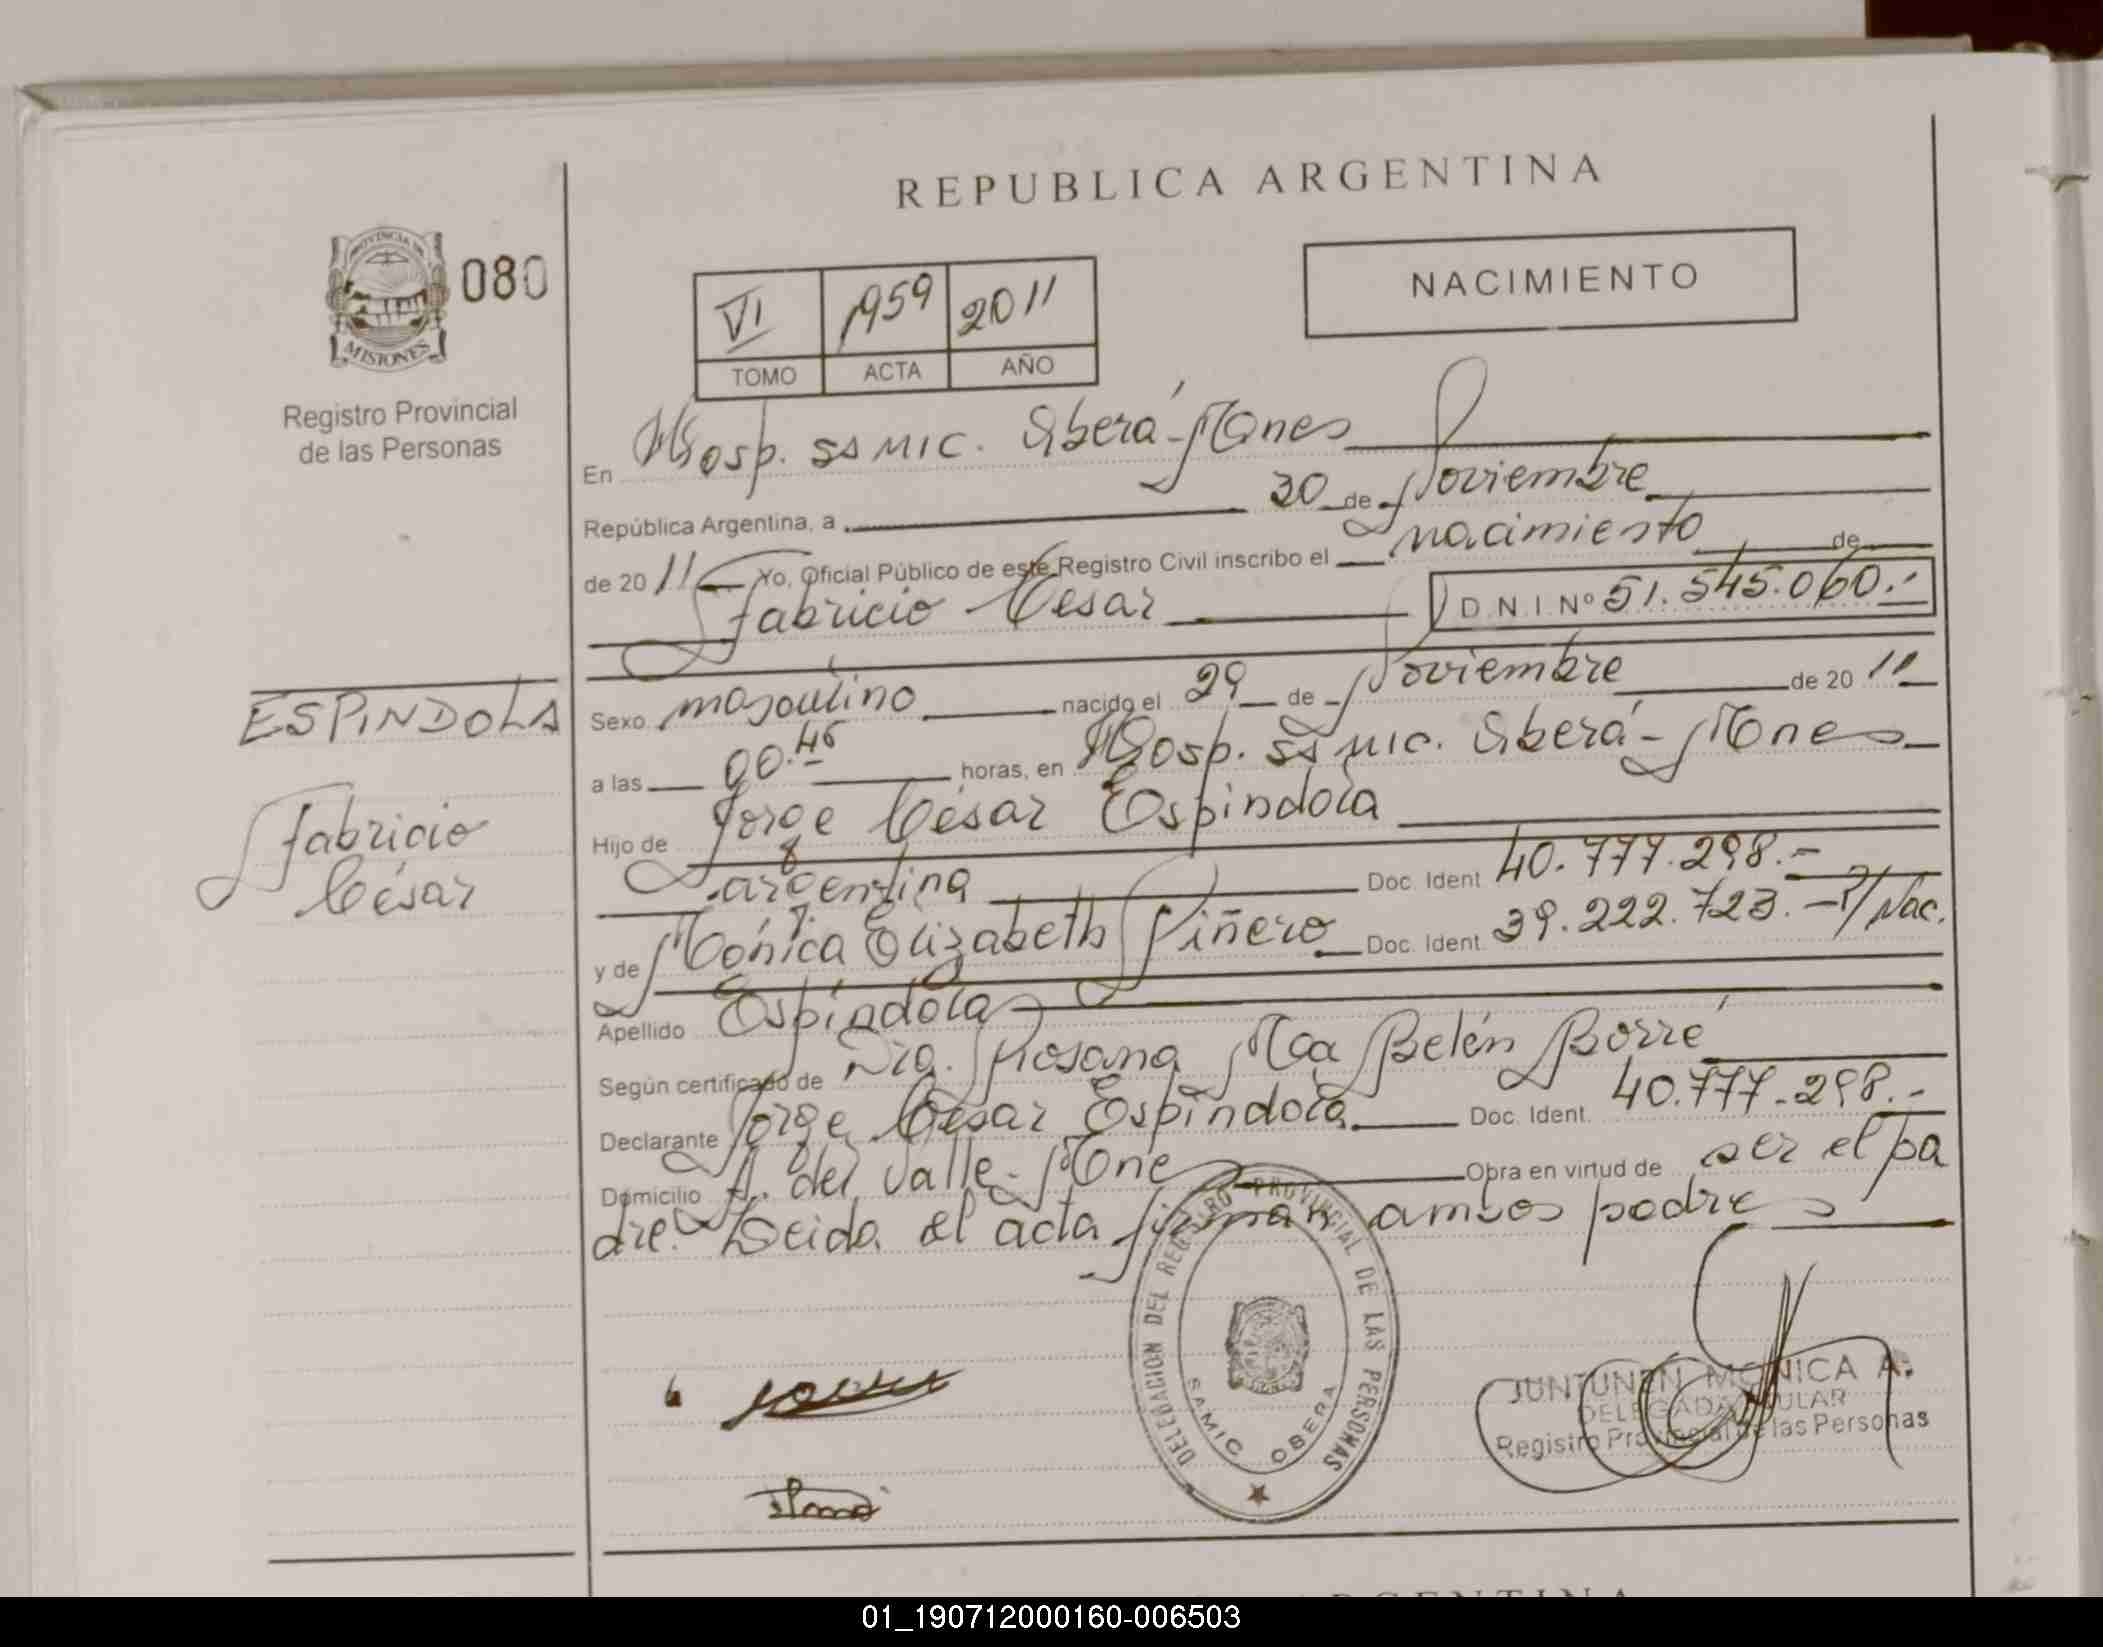 REPUBLICA ARGENTINA
PROVINCIA DE
MISIONES
080
Registro Provincial
de las Personas
VI 1959 2011
TOMO ACTA AÑO
NACIMIENTO
En Hosp. SAMIC. Oberá-Mnes
República Argentina, a 30 de Noviembre
de 2011 Yo, Oficial Público de este Registro Civil inscribo el nacimiento de
Fabricio César D.N.I Nº 51.545.060.-
ESPINDOLA
Fabricio
César
Sexo masculino nacido el 29 de Noviembre de 2011
a las 00.46 horas, en Hosp. SAMIC. Oberá-Mnes
Hijo de Jorge César Espíndola
argentina Doc. Ident 40.777.298.-
y de Mónica Elizabeth Piñero Doc. Ident. 39.222.723.- P/Nac.
Apellido Espíndola
Según certificado de Dra. Rosana Ma Belén Borré
Declarante Jorge César Espíndola Doc. Ident. 40.777.298.-
Domicilio A. del Valle-Mnes Obra en virtud de ser el pa
dre. Leida el acta firman ambos padres
DELEGACION DEL REGISTRO PROVINCIAL DE LAS PERSONAS
SAMIC OBERA
JUNTUNEN MONICA A.
DELEGADA TITULAR
Registro Provincial de las Personas
ARGENTINA
01_190712000160-006503